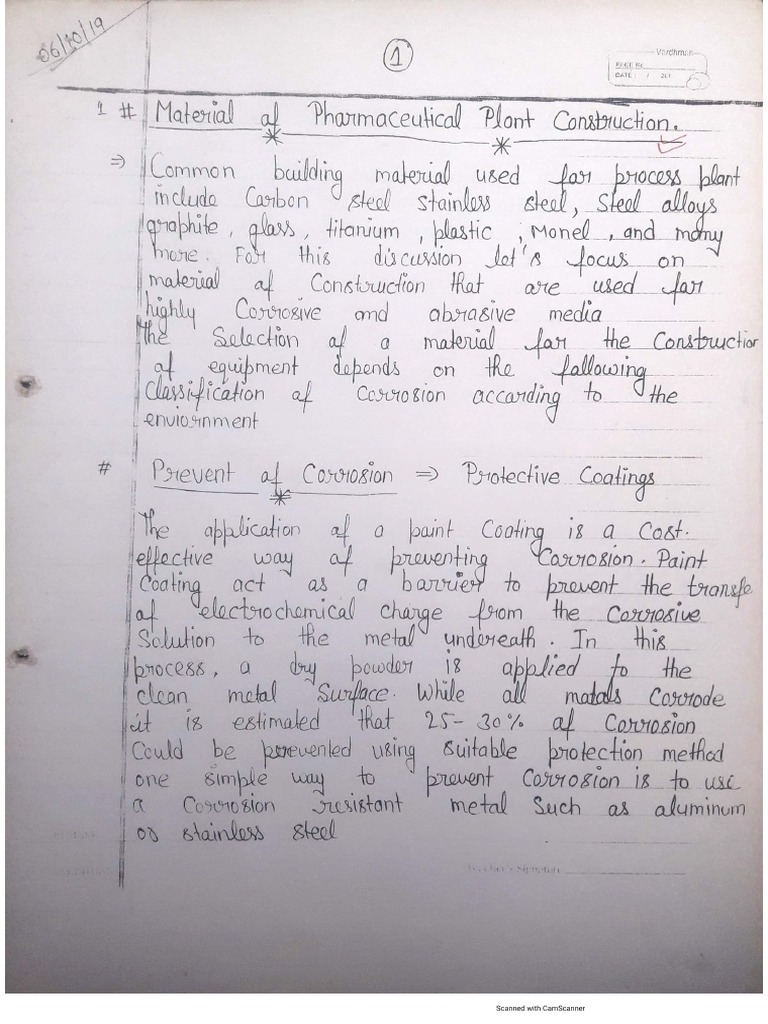 06/10/19
1
Vardhman
DATE: / 20
1 # Material of Pharmaceutical Plant Construction.
⇒ Common building material used for process plant
include Carbon steel stainless steel, Steel alloys
graphite, glass, titanium, plastic, Monel, and many
more. For this discussion let's focus on
material of Construction that are used for
highly Corrosive and abrasive media
The Selection of a material for the Construction
of equipment depends on the following
Classification of Corrosion according to the
enviornment
# Prevent of Corrosion ⇒ Protective Coatings
The application of a paint Coating is a Cost-
effective way of preventing Corrosion. Paint
Coating act as a barrier to prevent the transfe
of electrochemical charge from the Corrosive
Solution to the metal undereath. In this
process, a dry powder is applied to the
clean metal Surface. While all matals Corrode
it is estimated that 25-30% of Corrosion
Could be prevented using suitable protection method
one simple way to prevent Corrosion is to use
a Corrosion resistant metal Such as aluminum
or stainless steel
Teacher's Signature
Scanned with CamScanner